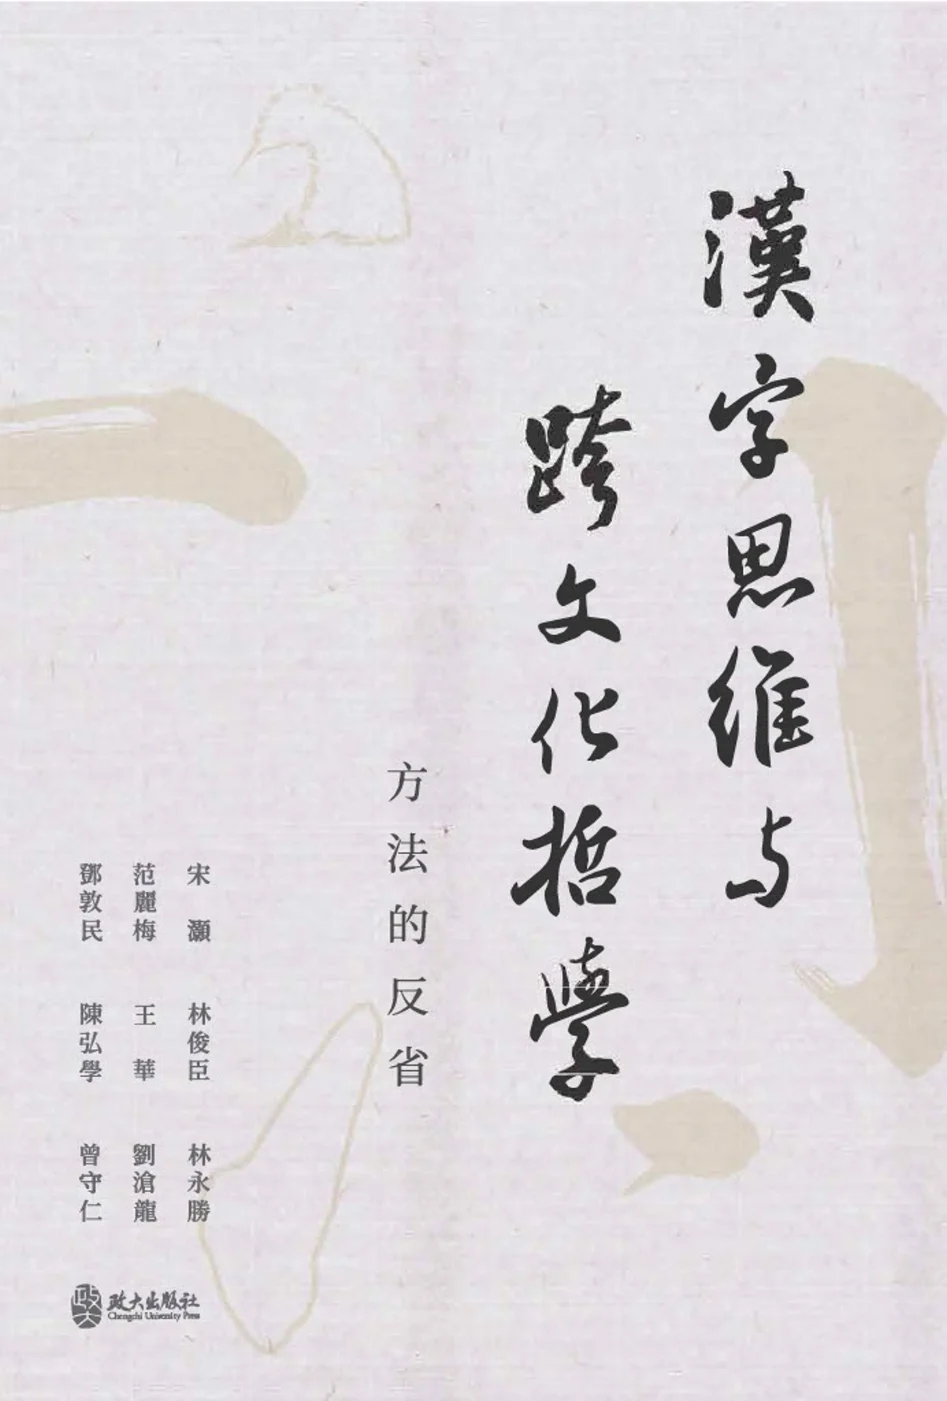 漢字思維與
跨文化哲學
方法的反省
宋灝 林俊臣 林永勝
范麗梅 王華 劉滄龍
鄧敦民 陳弘學 曾守仁
政大
政大出版社
Chengchi University Press